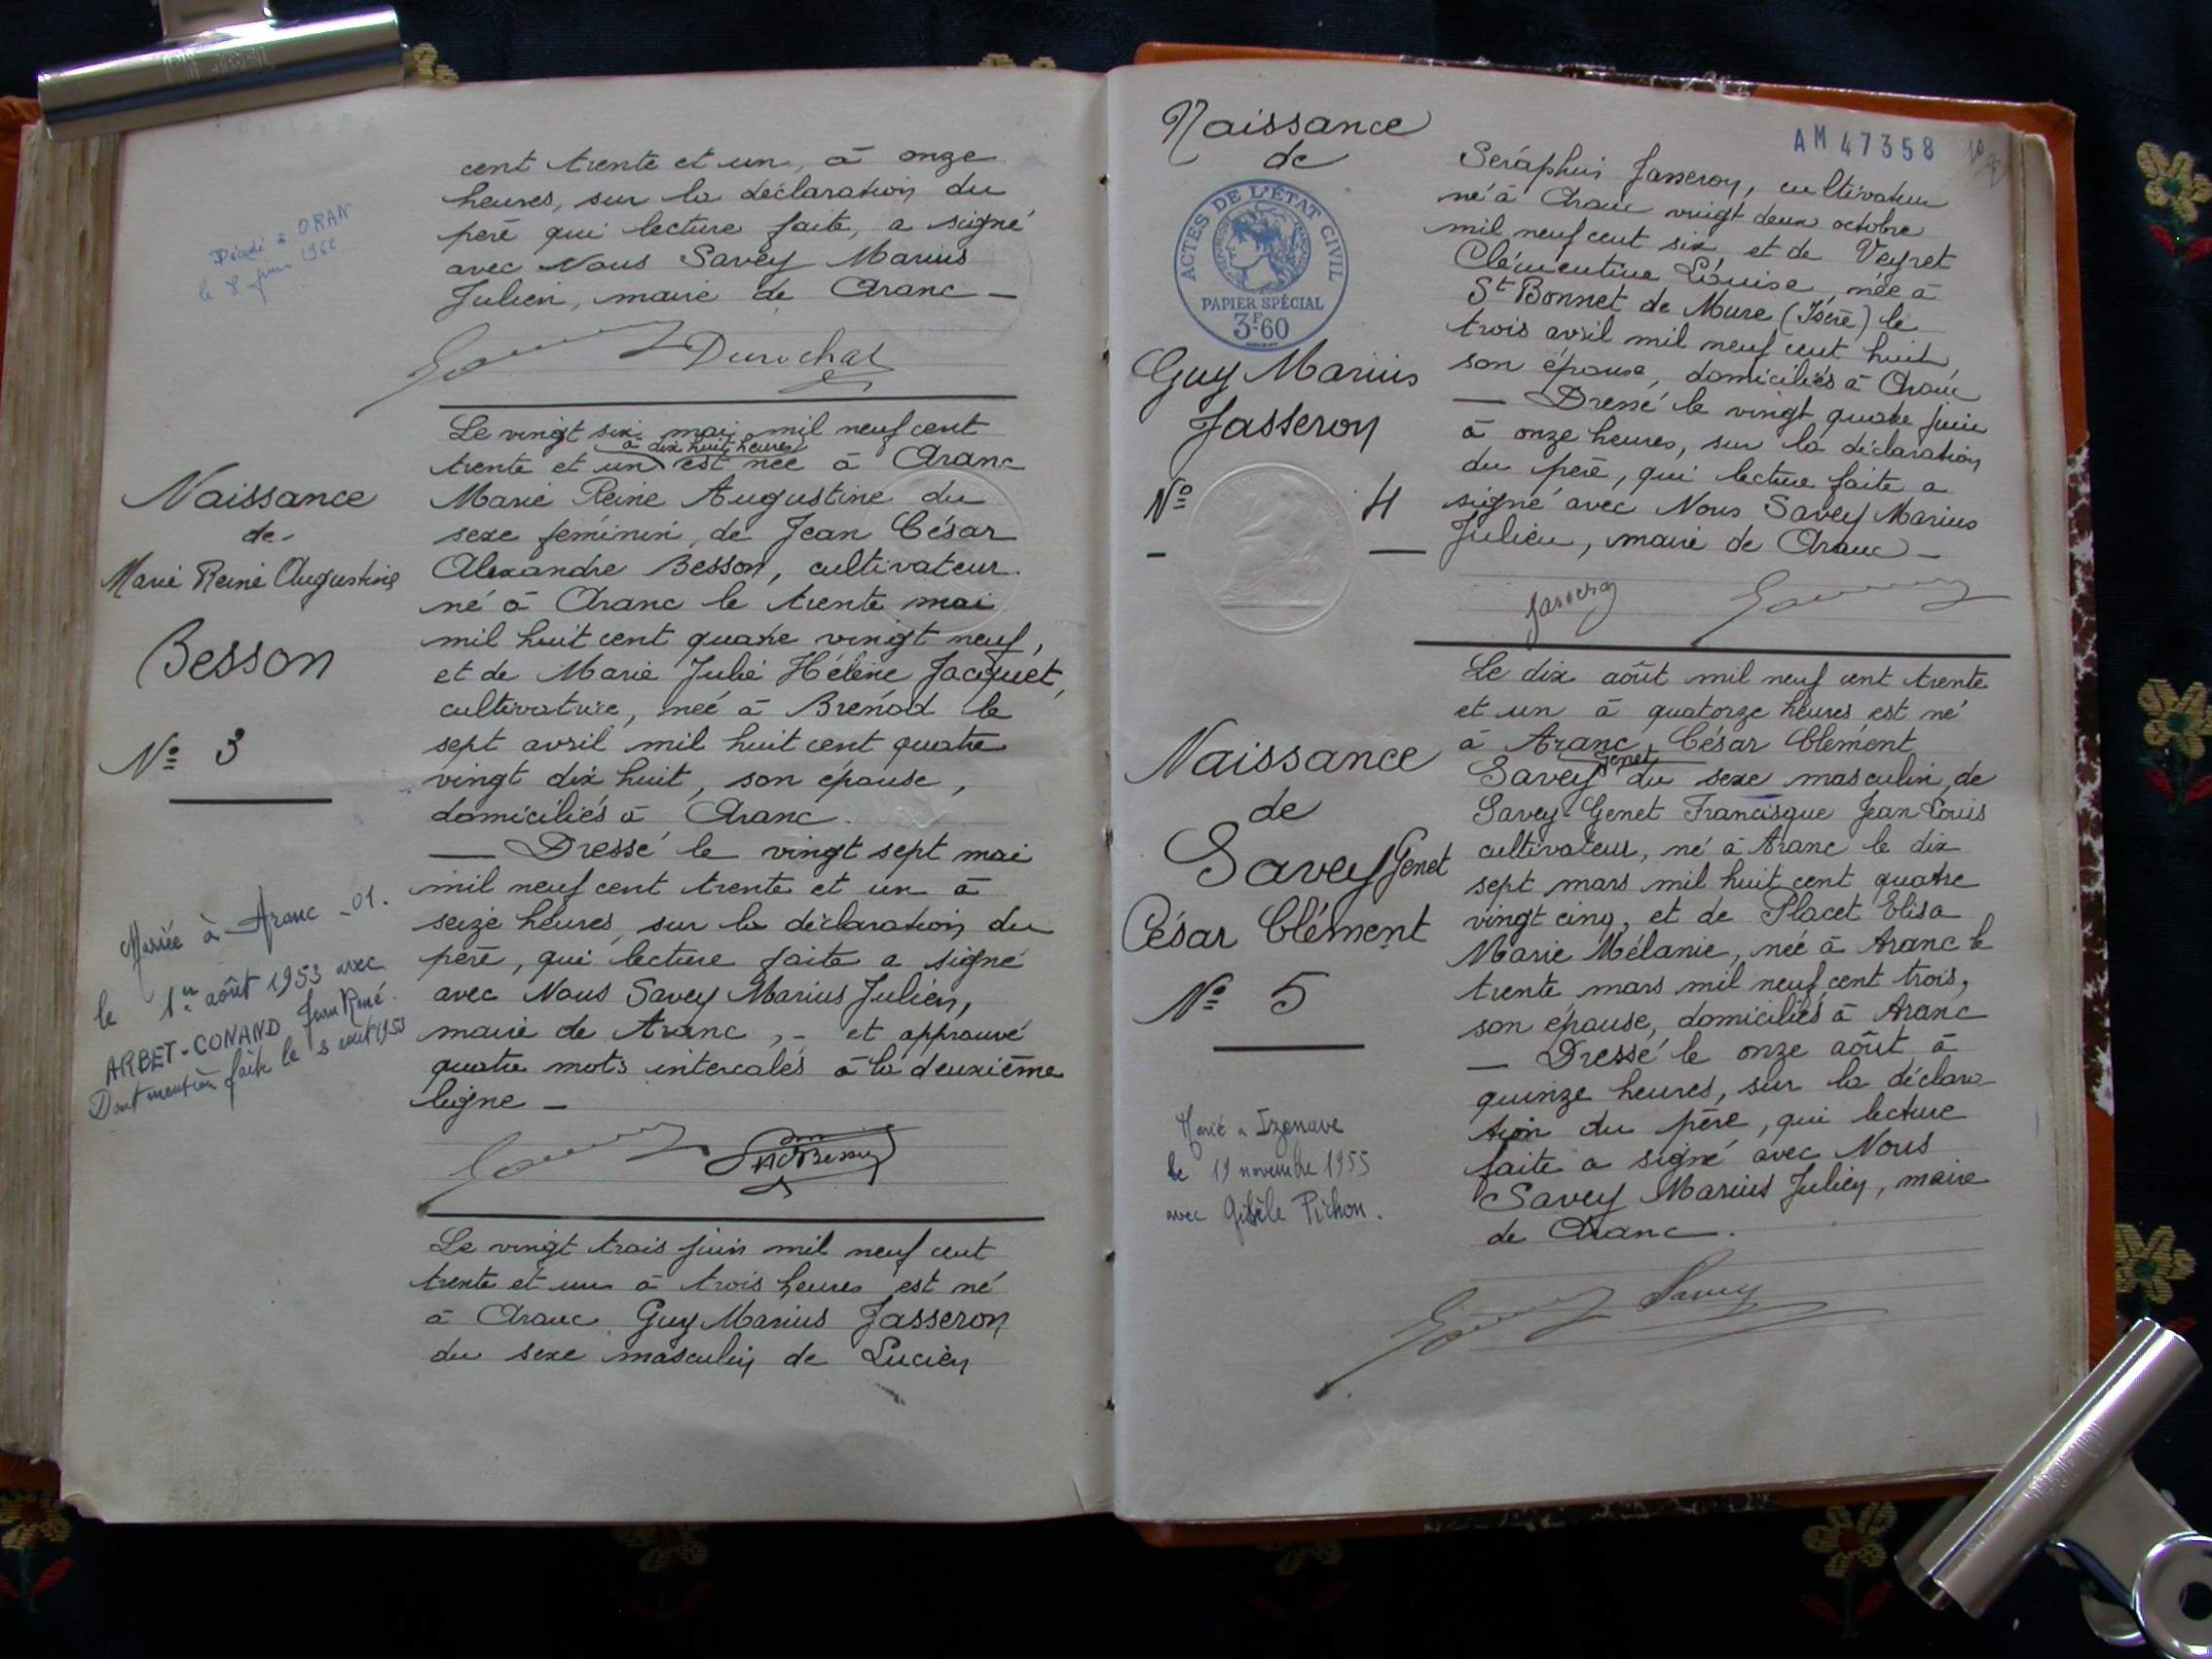 Décédé à ORAN
le 8 juin
cent trente et un, à onze
heures, sur la déclaration du
père qui lecture faite, a signé
avec Nous Savey Marius
Julien, maire de Aranc —
Durochat
Naissance
de
Marie Reine Augustine
Besson
Nº 3
Mariée à Aranc -01.
le 1er août 1953 avec
ARBET-CONAND Jean René.
Dont mention faite le 3 août 1953
Le vingt six mai mil neuf cent
à dix huit heures
trente et un est née à Aranc
Marie Reine Augustine du
sexe féminin, de Jean César
Alexandre Besson, cultivateur.
né à Aranc le trente mai
mil huit cent quatre vingt neuf,
et de Marie Julie Hélène Jacquet,
cultivatrice, née à Brénod le
sept avril mil huit cent quatre
vingt dix huit, son épouse,
domiciliés à Aranc.
— Dressé le vingt sept mai
mil neuf cent trente et un à
seize heures, sur la déclaration du
père, qui lecture faite a signé
avec Nous Savey Marius Julien,
maire de Aranc, - et approuvé
quatre mots intercalés à la deuxième
ligne —
Le vingt trois juin mil neuf cent
trente et un à trois heures est né
à Aranc Guy Marius Jasseron
du sexe masculin de Lucien
AM 47358
Naissance
de
ACTES DE L'ÉTAT CIVIL
PAPIER SPÉCIAL
3F.60
Guy Marius
Jasseron
Nº 4
Séraphin Jasseron, cultivateur
né à Aranc vingt deux octobre
mil neuf cent six, et de Veyret
Clémentine Louise, née à
St Bonnet de Mure (Isère) le
trois avril mil neuf cent huit,
son épouse, domiciliés à Aranc
— Dressé le vingt quatre juin
à onze heures, sur la déclaration
du père, qui lecture faite a
signé avec Nous Savey Marius
Julien, maire de Aranc —
Jasseron
Naissance
de
Savey Genet
César Clément
Nº 5
Marié à Izenave
le 19 novembre 1955
avec Gisèle Pichon.
Le dix août mil neuf cent trente
et un à quatorze heures est né
à Aranc, César Clément
Genet
Savey du sexe masculin, de
Savey-Genet Francisque Jean Louis
cultivateur, né à Aranc le dix
sept mars mil huit cent quatre
vingt cinq, et de Placet Elisa
Marie Mélanie, née à Aranc le
trente mars mil neuf cent trois,
son épouse, domiciliés à Aranc
— Dressé le onze août à
quinze heures, sur la déclara
tion du père, qui lecture
faite a signé avec Nous
Savey Marius Julien, maire
de Aranc.
Savey